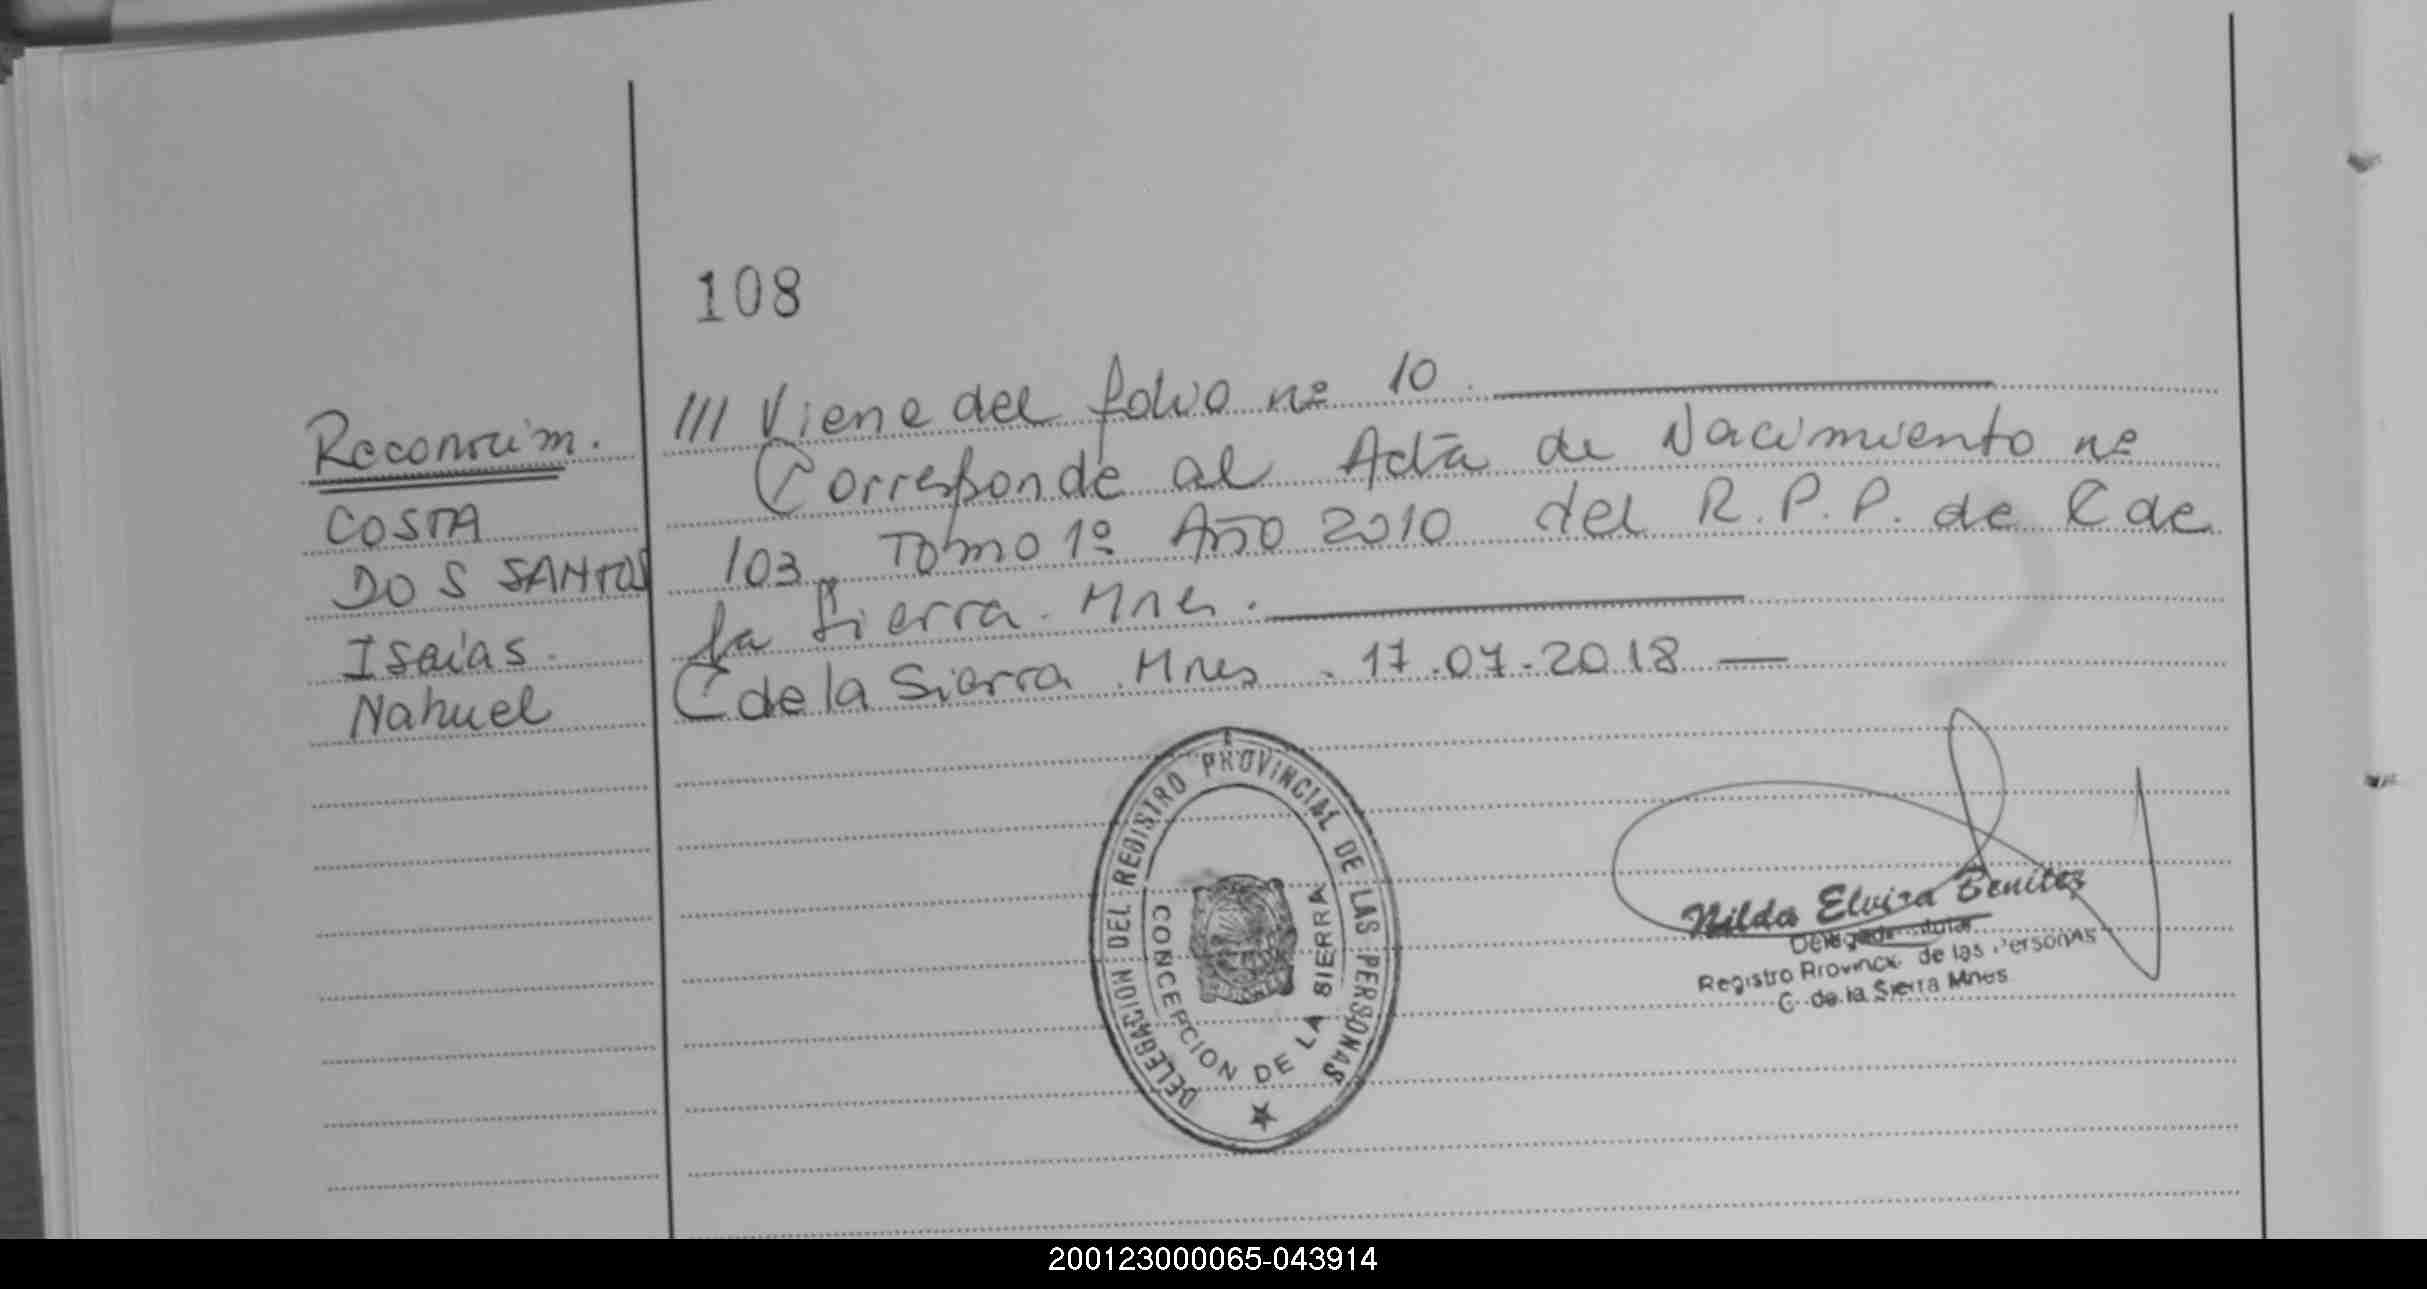 108
Reconocim.
COSTA
DO S SANTOS
Isaías.
Nahuel
/// Viene del folio nº 10.
Corresponde al Acta de Nacimiento nº
103, Tomo 1º Año 2010 del R.P.P. de C de
la Sierra. Mnes.
C de la Sierra. Mnes. 17.07.2018 —
DELEGACION DEL REGISTRO PROVINCIAL DE LAS PERSONAS
CONCEPCION DE LA SIERRA
Nilda Elvira Benitez
Registro Provinc. de las Personas
C. de la Sierra Mnes
200123000065-043914